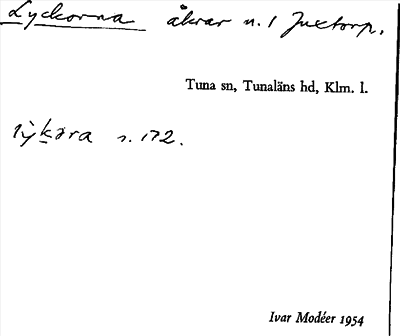 Lyckorna åkrar n. 1 Juxtorp.
Tuna sn, Tunaläns hd, Klm. l.
s. 172.
Ivar Modéer 1954